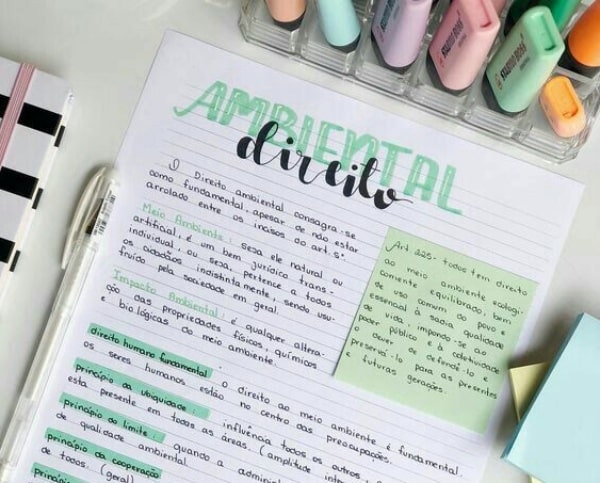 AMBIENTAL
direito
O Direito ambiental consagra-se
como fundamental, apesar de não estar
arrolado entre os incisos do art. 5º
Meio Ambiente: seja ele natural ou
artificial, é um bem jurídico trans-
individual, ou seja, pertence a todos
os cidadãos indistintamente, sendo usu-
fruído pela sociedade em geral.
Impacto Ambiental: é qualquer altera-
ção das propriedades físicos, químicos
e biológicas do meio ambiente.
direito humano fundamental: o direito ao meio ambiente é fundamental
os seres humanos estão no centro das preocupações.
princípio da ubiquidade: influência todos os outros
esta presente em todos as áreas. (amplitude
princípio do limite: quando a
de qualidade ambiental
princípio da cooperação
de todos. (geral)
princípio
Art 225- todos tem direito
ao meio ambiente ecologi-
camente equilibrado, bem
de uso comum do povo e
essencial à sadia qualidade
de vida, impondo-se ao
poder público e à coletividade
o dever de defendê-lo e
preservá-lo para as presentes
e futuras gerações.
STABILO BOSS